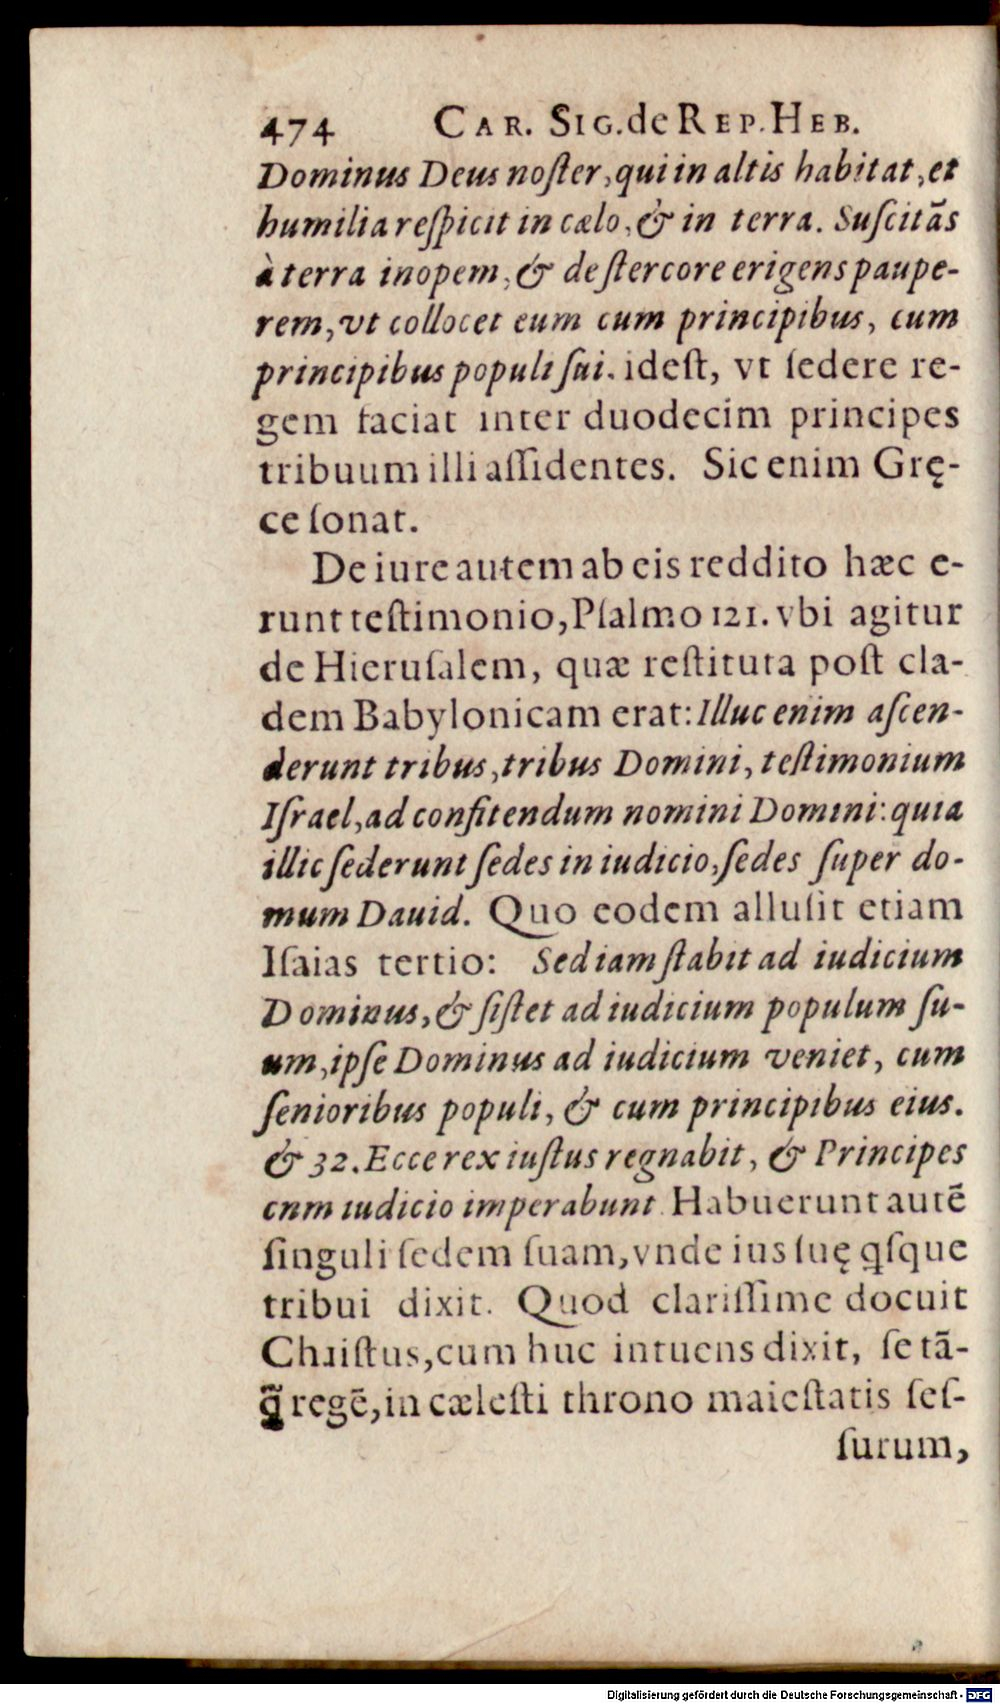 474 CAR. SIG. de REP. HEB.
Dominus Deus noſter, qui in altis habitat, et
humilia reſpicit in cælo, & in terra. Suſcitās
à terra inopem, & de ſtercore erigens paupe-
rem, vt collocet eum cum principibus, cum
principibus populi ſui. ideſt, vt ſedere re-
gem faciat inter duodecim principes
tribuum illi aſſidentes. Sic enim Grę-
ce ſonat.
De iure autem ab eis reddito hæc e-
runt teſtimonio, Pſalmo 121. vbi agitur
de Hieruſalem, quæ reſtituta poſt cla-
dem Babylonicam erat: Illuc enim aſcen-
derunt tribus, tribus Domini, teſtimonium
Iſrael, ad confitendum nomini Domini: quia
illic ſederunt ſedes in iudicio, ſedes ſuper do-
mum Dauid. Quo eodem alluſit etiam
Iſaias tertio: Sed iam ſtabit ad iudicium
Dominus, & ſiſtet ad iudicium populum ſu-
um, ipſe Dominus ad iudicium veniet, cum
ſenioribus populi, & cum principibus eius.
& 32. Ecce rex iuſtus regnabit, & Principes
cnm iudicio imperabunt. Habuerunt autē
ſinguli ſedem ſuam, vnde ius ſuę qſque
tribui dixit. Quod clariſſime docuit
Chriſtus, cum huc intuens dixit, ſe tā-
q̃ regē, in cæleſti throno maieſtatis ſeſ-
ſurum,
Digitalisierung gefördert durch die Deutsche Forschungsgemeinschaft - DFG